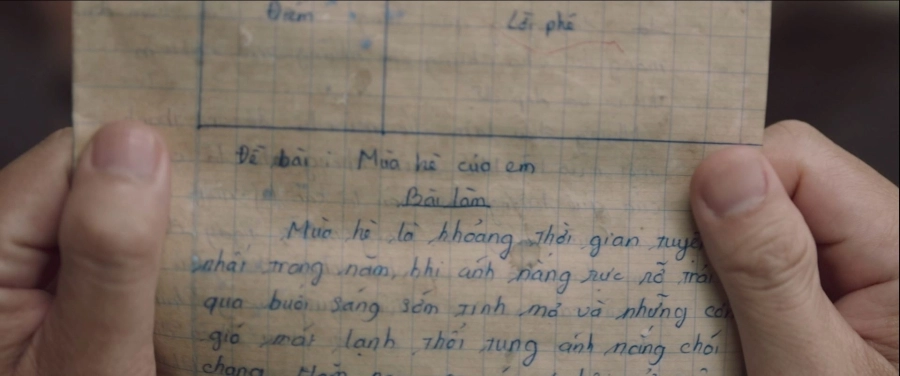 Điểm
Lời phê
Đề bài : Mùa hè của em
Bài làm
Mùa hè là khoảng thời gian tuyệt
nhất trong năm, khi ánh nắng rực rỡ trải
qua buổi sáng sớm tinh mơ và những cơn
gió mát lạnh thổi tung ánh nắng chói
chang